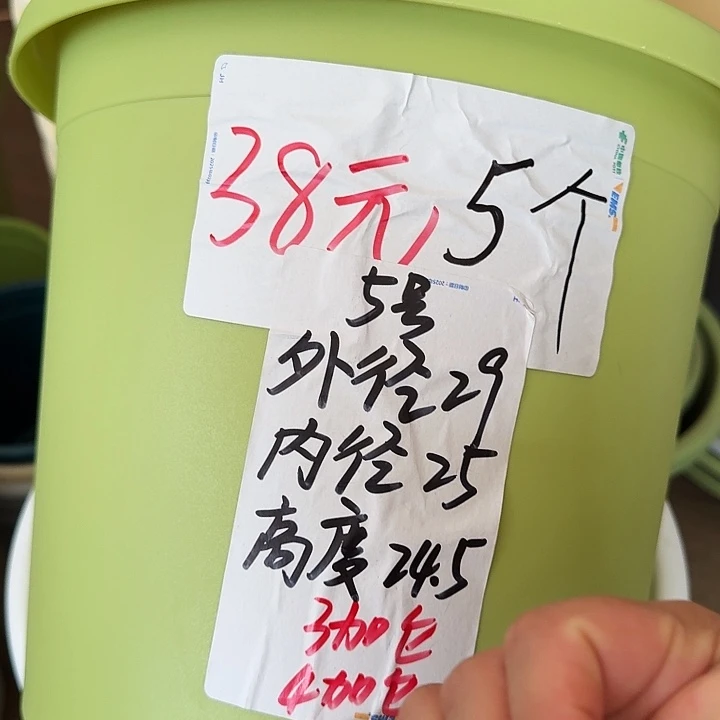 38元/5个
5号
外径29
内径25
高度24.5
3加仑
4加仑
EMS